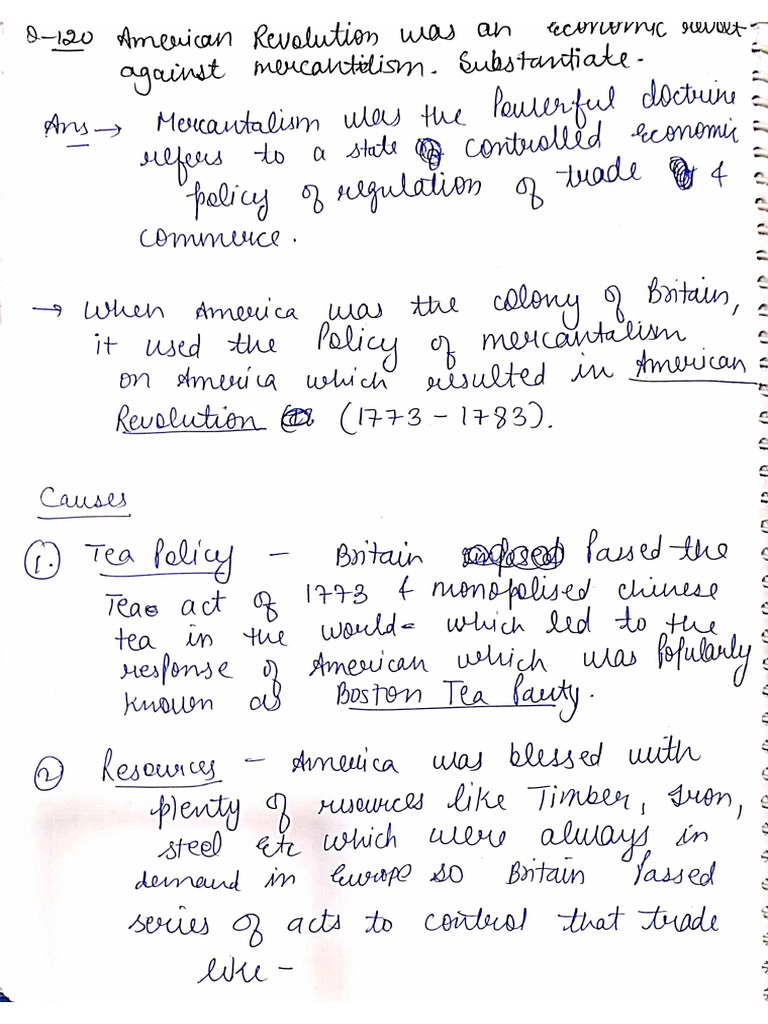 Q-120 American Revolution was an economic revolt
against mercantilism. Substantiate.
Ans → Mercantalism was the Powerful doctrine
refers to a state controlled economic
policy of regulation of trade &
commerce.
→ When America was the colony of Britain,
it used the Policy of mercantalism
on America which resulted in American
Revolution (1773 - 1783).
Causes
1. Tea Policy - Britain Passed the
Tea act of 1773 & monopolised chinese
tea in the world which led to the
response of American which was Popularly
known as Boston Tea Party.
2 Resources - America was blessed with
plenty of resources like Timber, Iron,
steel etc which were always in
demand in Europe so Britain Passed
series of acts to control that trade
like -